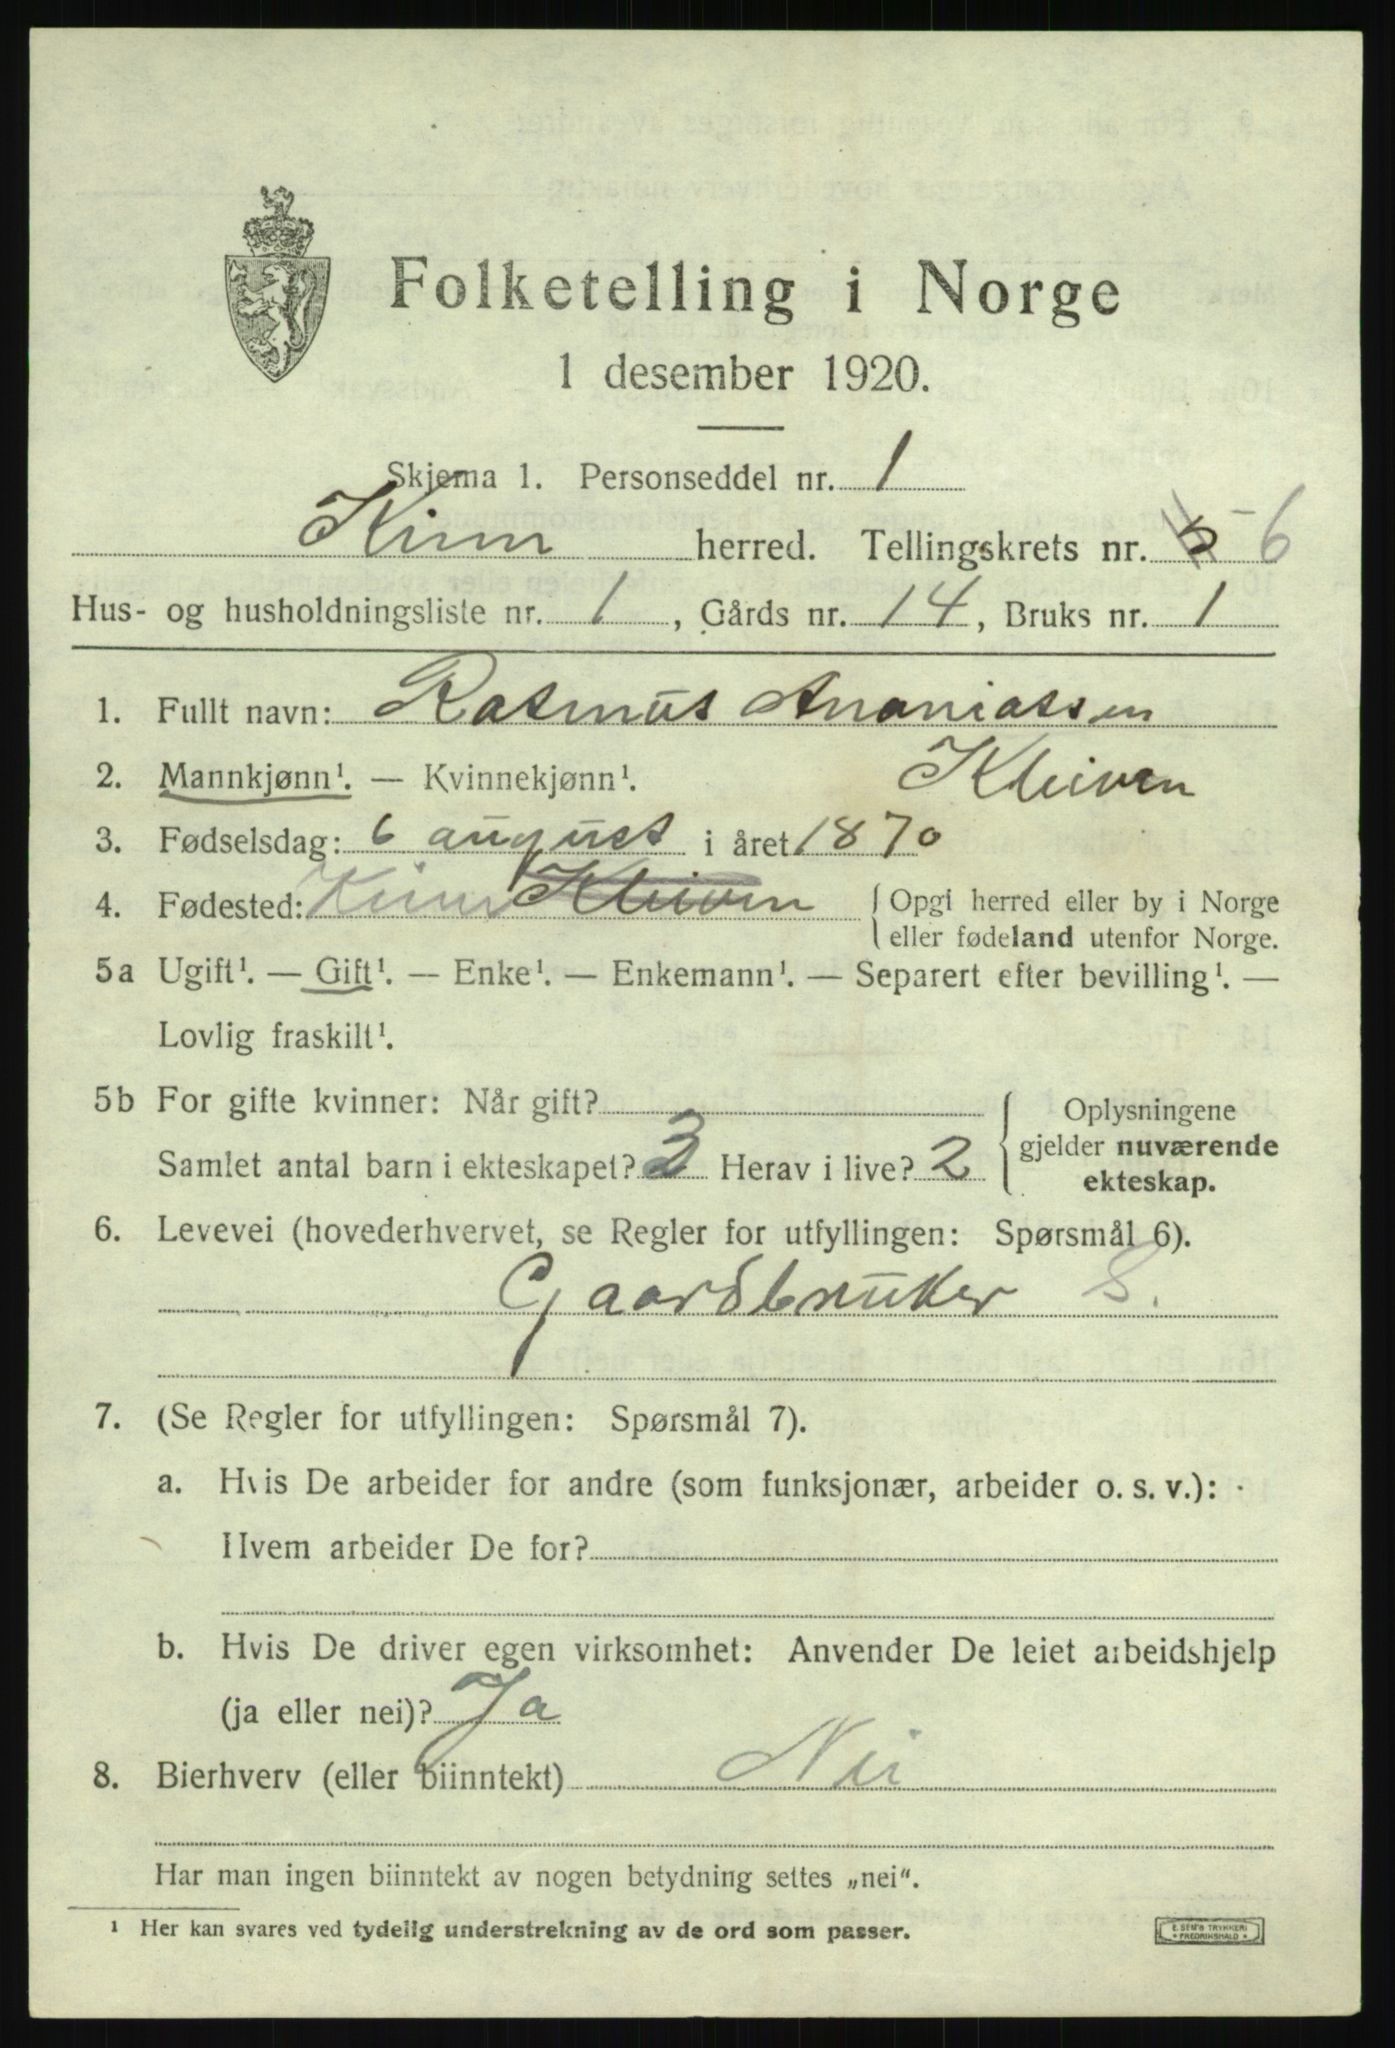 Folketelling i Norge
1 desember 1920.
Skjema 1. Personseddel nr. 1
Kinn herred. Tellingskrets nr. 5 6
Hus- og husholdningsliste nr. 1, Gårds nr. 14, Bruks nr. 1
1. Fullt navn: Rasmus Ananiassen
Kleiven
2. Mannkjønn¹. — Kvinnekjønn¹.
3. Fødselsdag: 6 august i året 1870
4. Fødested: Kinn Kleiven { Opgi herred eller by i Norge
eller fødeland utenfor Norge.
5a Ugift¹. — Gift¹. — Enke¹. — Enkemann¹. — Separert efter bevilling¹. —
Lovlig fraskilt¹.
5b For gifte kvinner: Når gift?
Samlet antal barn i ekteskapet? 3 Herav i live? 2
Oplysningene
gjelder nuværende
ekteskap.
6. Levevei (hovederhvervet, se Regler for utfyllingen: Spørsmål 6).
Gaardbruker S.
7. (Se Regler for utfyllingen: Spørsmål 7).
a. Hvis De arbeider for andre (som funksjonær, arbeider o. s. v.):
Hvem arbeider De for?
b. Hvis De driver egen virksomhet: Anvender De leiet arbeidshjelp
(ja eller nei)? Ja
8. Bierhverv (eller biinntekt) Nei
Har man ingen biinntekt av nogen betydning settes „nei“.
¹ Her kan svares ved tydelig understrekning av de ord som passer.
E. SEM'S TRYKKERI
FREDRIKSHALD